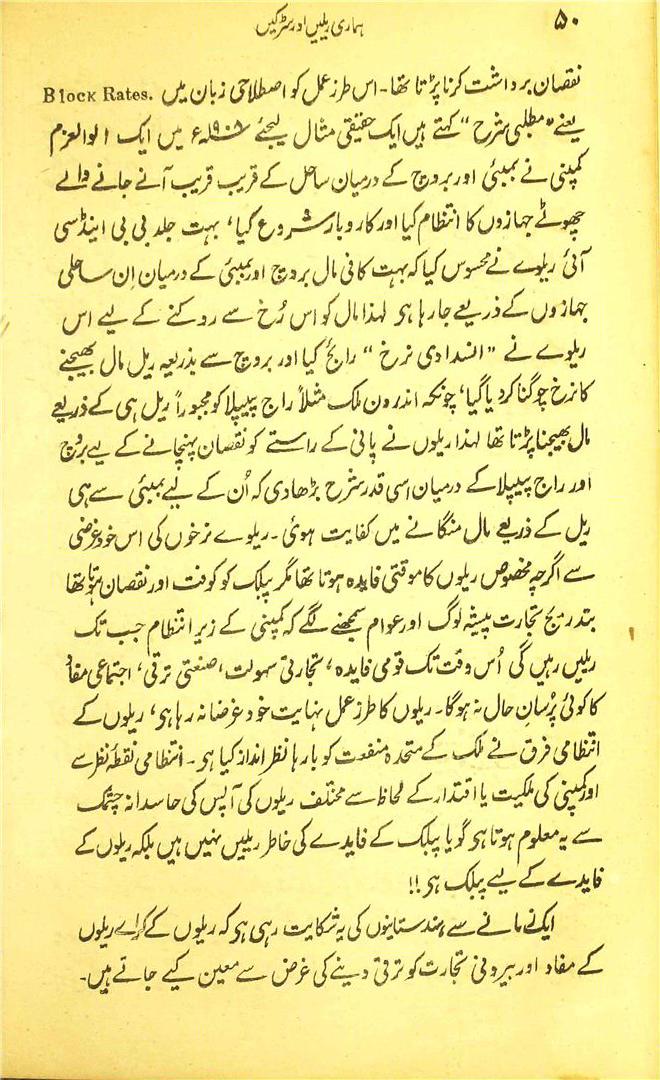 ۵۰
ہماری ریلیں اور سڑکیں
نقصان برداشت کرنا پڑتا تھا۔ اس طرز عمل کو اصطلاحی زبان میں Block Rates.
یعنے "مطلبی شرح" کہتے ہیں ایک حقیقی مثال لیجئے ۱۹۰۸ء میں ایک الوالعزم
کمپنی نے بمبئی اور بروچ کے درمیان ساحل کے قریب قریب آنے جانے والے
چھوٹے جہازوں کا انتظام کیا اور کاروبار شروع کیا، بہت جلد بی بی اینڈ سی
آئی ریلوے نے محسوس کیا کہ بہت کافی مال بروچ اور بمبئی کے درمیان اِن ساحلی
جہازوں کے ذریعے جا رہا ہو لہذا مال کو اس رُخ سے روکنے کے لیے اس
ریلوے نے "انسدادی نرخ" رائج کیا اور بروچ سے بذریعہ ریل مال بھیجنے
کا نرخ چوگنا کر دیا گیا، چونکہ اندرون ملک مثلاً راج پیپلا کو مجبوراً ریل ہی کے ذریعے
مال بھیجنا پڑتا تھا لہذا ریلوں نے پانی کے راستے کو نقصان پہنچانے کے لیے بروچ
اور راج پیپلا کے درمیان اسی قدر شرح بڑھا دی کہ اُن کے لیے بمبئی سے ہی
ریل کے ذریعے مال منگانے میں کفایت ہوئی۔ ریلوے نرخوں کی اس خود غرضی
سے اگرچہ مخصوص ریلوں کا موقتی فایدہ ہوتا تھا مگر پبلک کو کوفت اور نقصان ہوتا تھا
بتدریج تجارت پیشہ لوگ اور عوام سمجھنے لگے کہ کمپنی کے زیر انتظام جب تک
ریلیں رہیں گی اُس وقت تک قومی فایدہ، تجارتی سہولت، صنعتی ترقی، اجتماعی مفاد
کا کوئی پُرسانِ حال نہ ہوگا۔ ریلوں کا طرز عمل نہایت خود غرضانہ رہا ہو، ریلوں کے
انتظامی فرق نے ملک کے متحدہ منفعت کو بارہا نظر انداز کیا ہو۔ انتظامی نقطۂ نظر سے
اور کمپنی کی ملکیت یا اقتدار کے لحاظ سے مختلف ریلوں کی آپس کی حاسدانہ چشمک
سے یہ معلوم ہوتا ہو گویا پبلک کے فایدے کی خاطر ریلیں نہیں ہیں بلکہ ریلوں کے
فایدے کے لیے پبلک ہو!!
ایک زمانے سے ہندستانیوں کی یہ شکایت رہی ہو کہ ریلوں کے کرایے ریلوں
کے مفاد اور بیرونی تجارت کو ترقی دینے کی غرض سے معین کیے جاتے ہیں۔